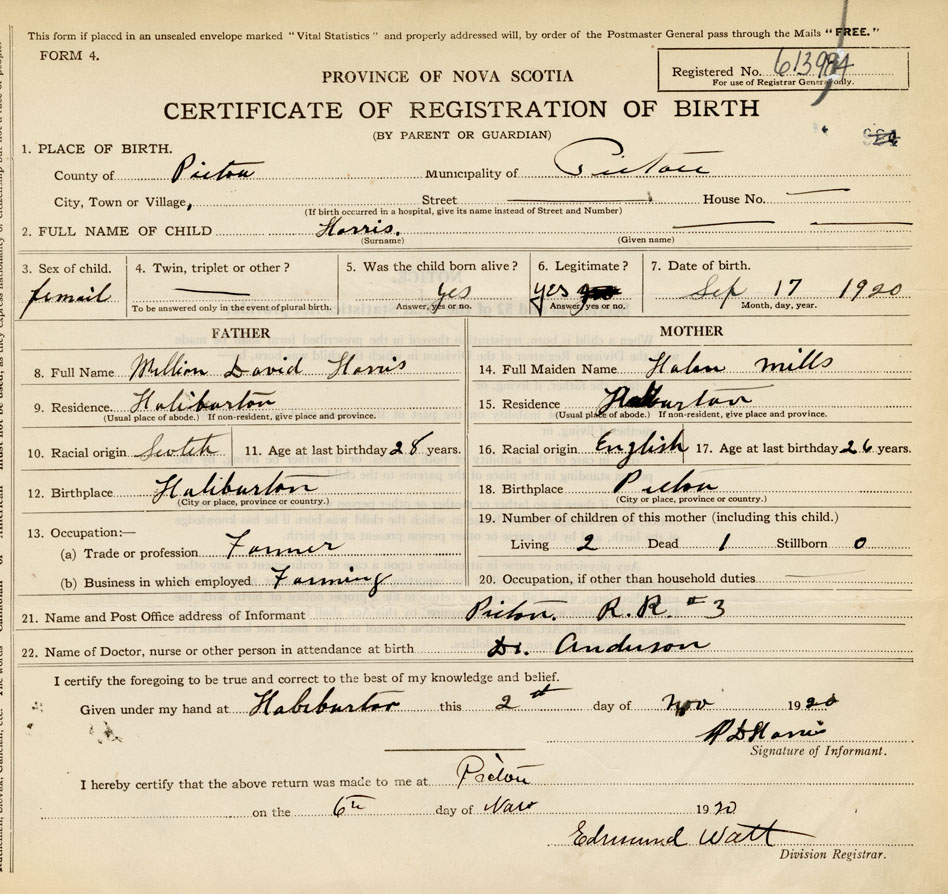 This form if placed in an unsealed envelope marked "Vital Statistics" and properly addressed will, by order of the Postmaster General pass through the Mails "FREE."
FORM 4.
Registered No. 613984
For use of Registrar General only.
PROVINCE OF NOVA SCOTIA
CERTIFICATE OF REGISTRATION OF BIRTH
(BY PARENT OR GUARDIAN)
1. PLACE OF BIRTH.
County of Pictou Municipality of Pictou
City, Town or Village, Street House No.
(If birth occurred in a hospital, give its name instead of Street and Number)
2. FULL NAME OF CHILD Harris.
(Surname) (Given name)
3. Sex of child. 4. Twin, triplet or other? 5. Was the child born alive? 6. Legitimate? 7. Date of birth.
femail yes yes Sep 17 1920
To be answered only in the event of plural birth. Answer, yes or no. Answer, yes or no. Month, day, year.
FATHER MOTHER
8. Full Name David Harris 14. Full Maiden Name Halan mills
9. Residence. Haliburton 15. Residence Haliburton
(Usual place of abode.) If non-resident, give place and province. (Usual place of abode.) If non-resident, give place and province.
10. Racial origin Scotch 11. Age at last birthday 28 years. 16. Racial origin English 17. Age at last birthday 26 years.
12. Birthplace Haliburton 18. Birthplace Pictou
(City or place, province or country.) (City or place, province or country.)
13. Occupation:— 19. Number of children of this mother (including this child.)
(a) Trade or profession Farmer Living 2 Dead 1 Stillborn 0
(b) Business in which employed Farming 20. Occupation, if other than household duties
21. Name and Post Office address of Informant Picton. R.R. #3
22. Name of Doctor, nurse or other person in attendance at birth Dr. Anderson
I certify the foregoing to be true and correct to the best of my knowledge and belief.
Given under my hand at Haliburton this 2nd day of Nov 1920
Signature of Informant.
I hereby certify that the above return was made to me at Pictou
on the 6th day of Nov 1920
Edmund Watt
Division Registrar.